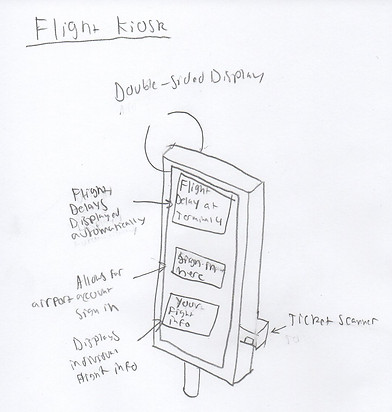 Flight Kiosk
Double-Sided Display
Flight
Delays
Displayed
automatically
Flight
Delay at
Terminal 4
Allows for
airport account
Sign in
Sign-in
here
Your
Flight
info
Displays
individual
flight info
Ticket Scanner